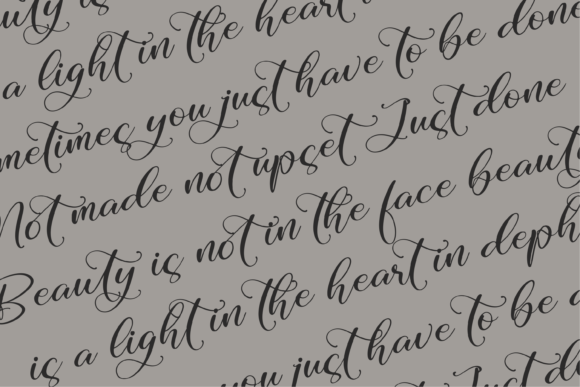 uty is
a light in the heart
metimes you just have to be done
Not made not upset Just done
Beauty is not in the face beauty
is a light in the heart in deph
you just have to be
Just